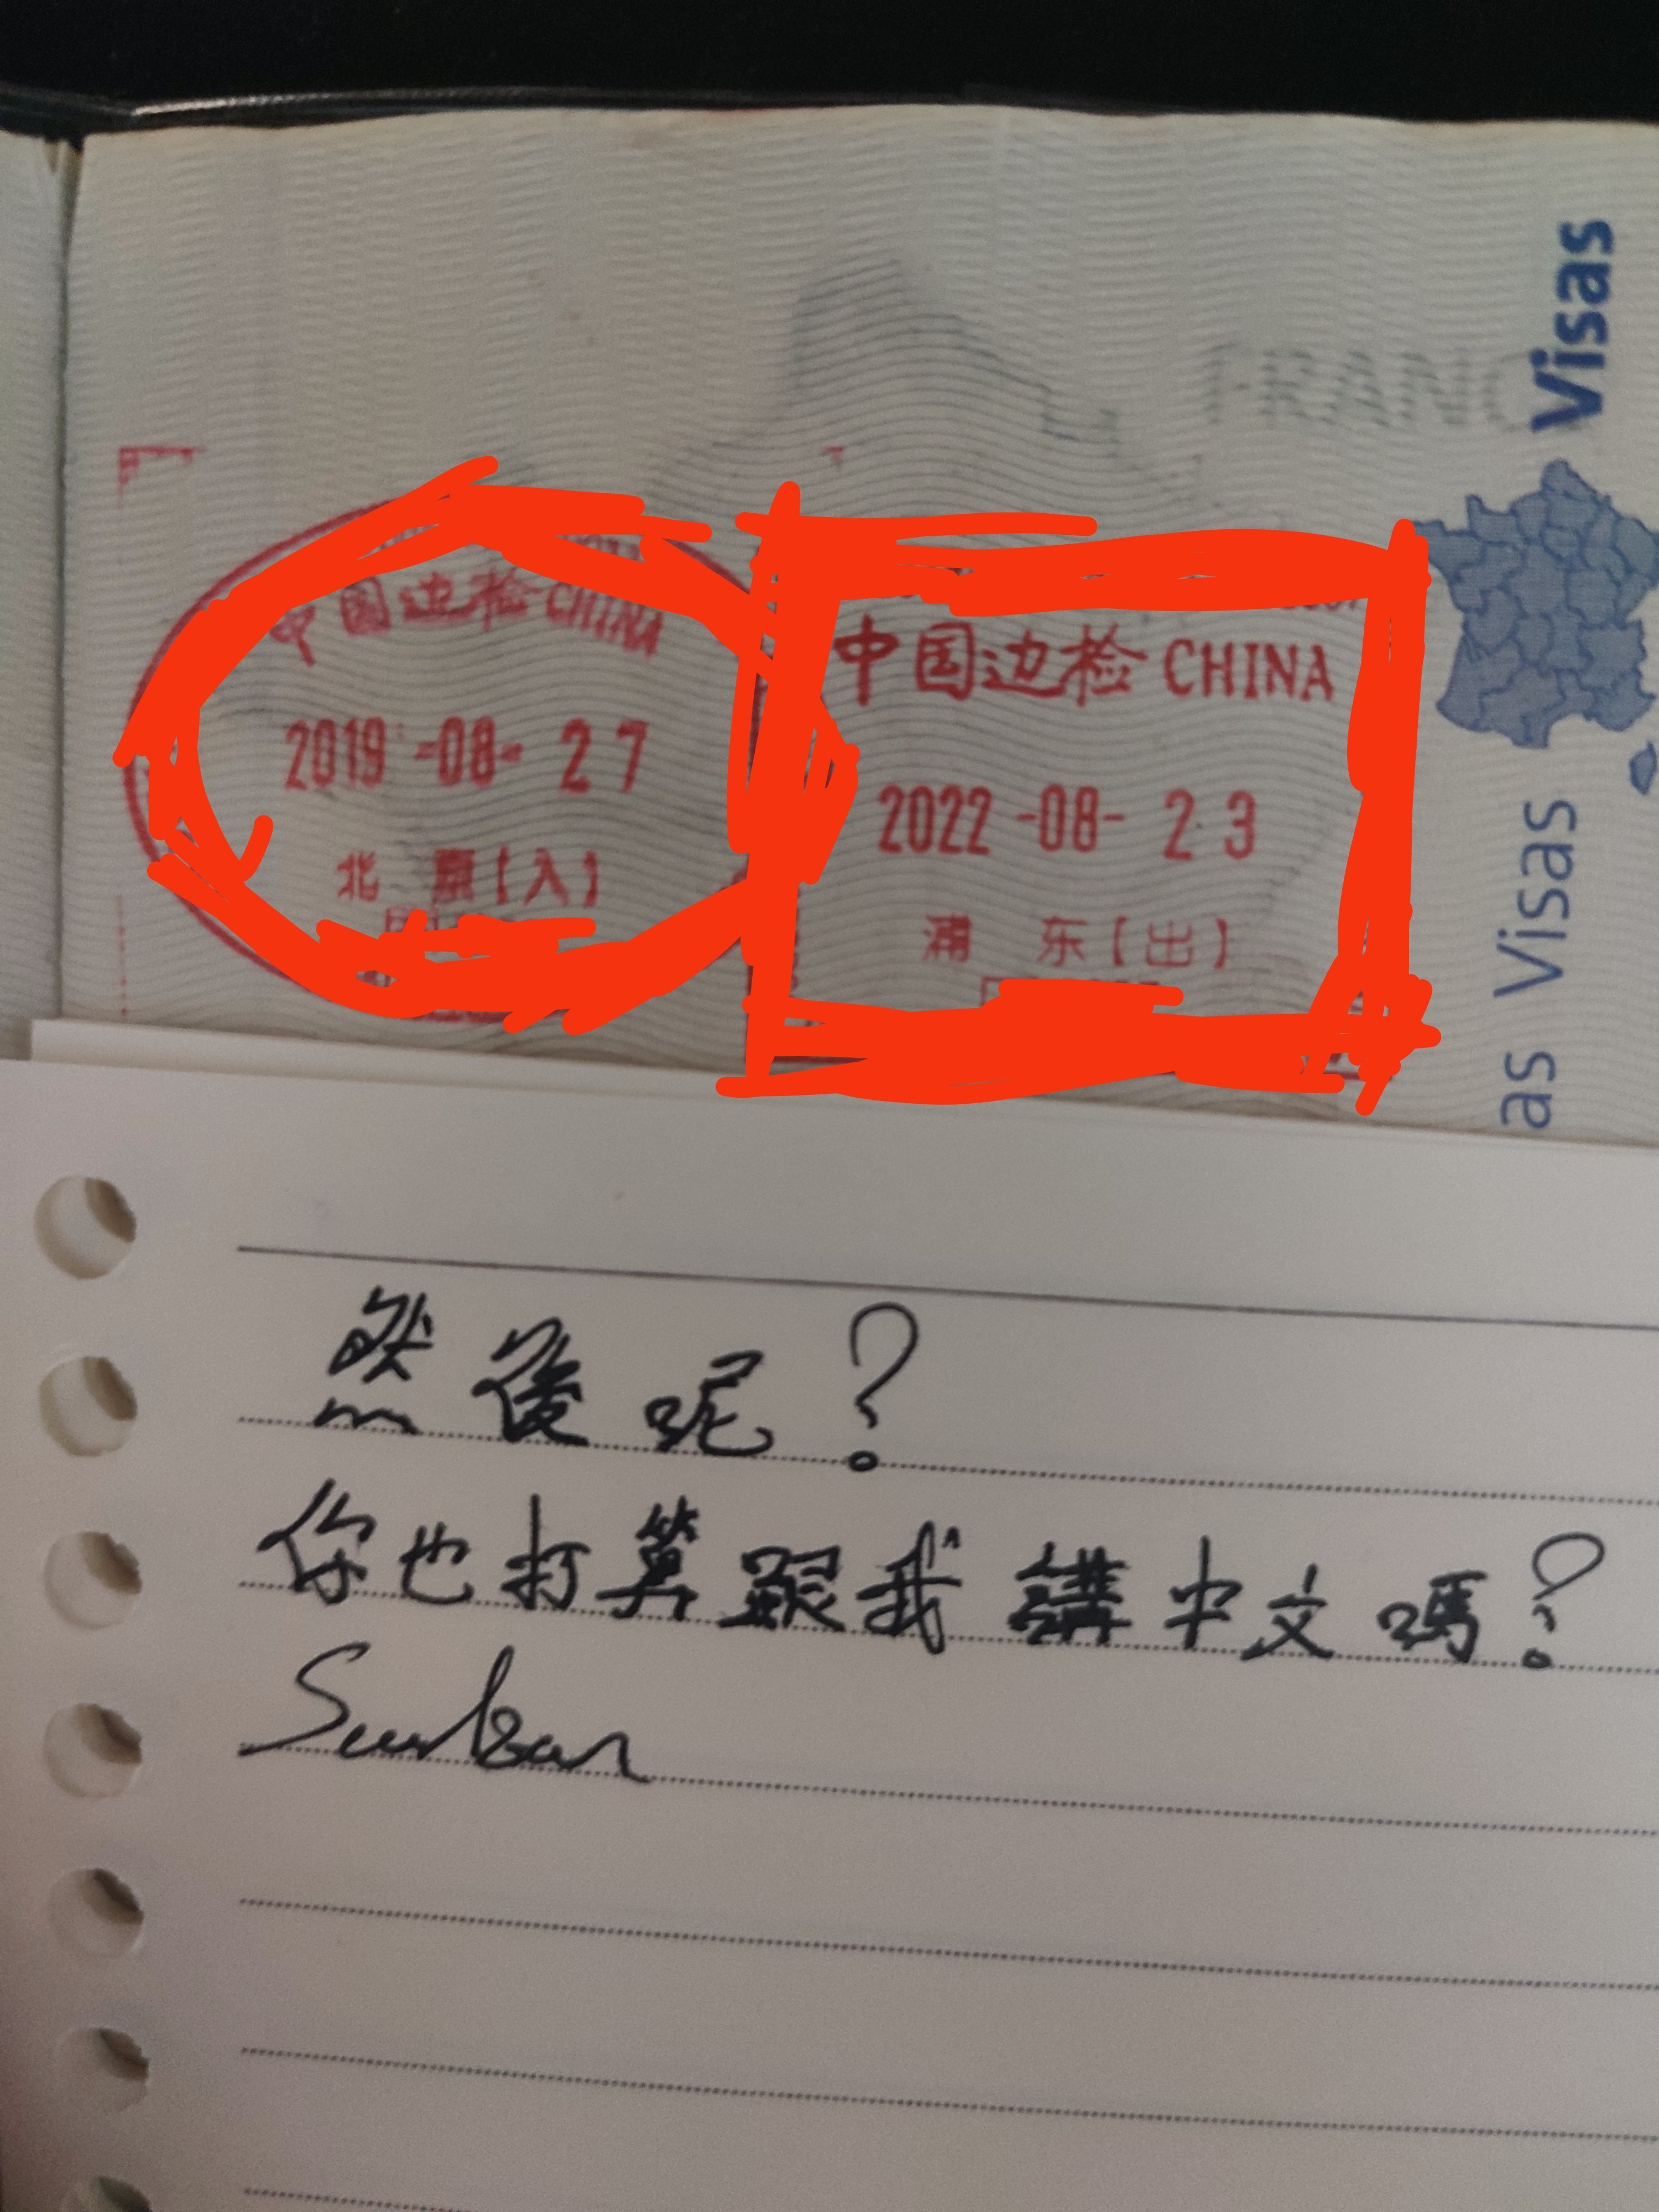 Visas
FRANC
中国边检 CHINA
2019-08-27
北 京【入】
中国边检 CHINA
2022-08-23
浦 东【出】
as Visas
然後呢?
你也打算跟我講中文嗎?